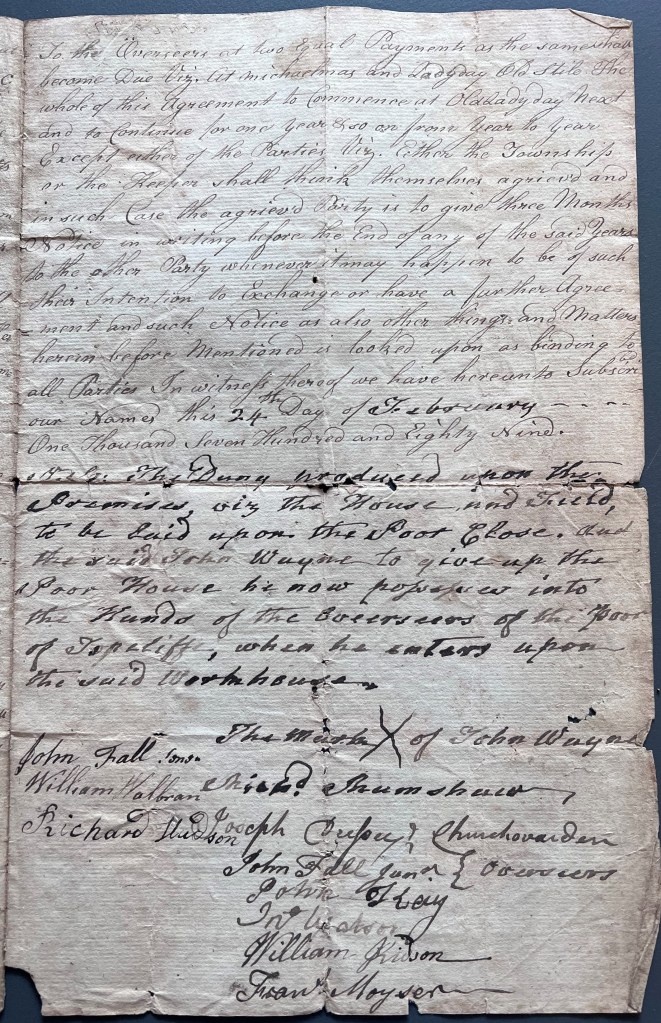 To the Overseers at two Equal Payments as the same shall
become Due Viz. at michaelmas and Ladyday Old Stile. The
whole of this Agreement to Commence at Old Ladyday Next
and to Continue for one Year & so on from Year to Year
Except either of the Parties Viz. Either the Township
or the Keeper shall think themselves agriev'd and
in such Case the agriev'd Party is to give three Months
Notice in writing before the End of any of the said Years
to the other Party whenever it may happen to be of such
their Intention to Exchange or have a further Agree-
-ment and such Notice as also other things and Matters
herein before Mentioned is looked upon as binding to
all Parties In witness thereof we have hereunto Subscribd
our Names this 24th Day of February
One Thousand Seven Hundred and Eighty Nine.
The Dung produced upon the
Premises, viz the House and Field,
to be Laid upon the Poor Close. And
the said John Wayne to give up the
Poor House he now possesses into
the Hands of the Overseers of the Poor
of Topcliffe, when he enters upon
the said Workhouse.
The Mark X of John Wayne
John Fall Senr
William Halbran
Richard Hudson
Richd. Shumshaw
Joseph Churchwarden
John Fall Junr } Overseers
John Kay
Jno Watson
William Kidson
Frans. Moyser